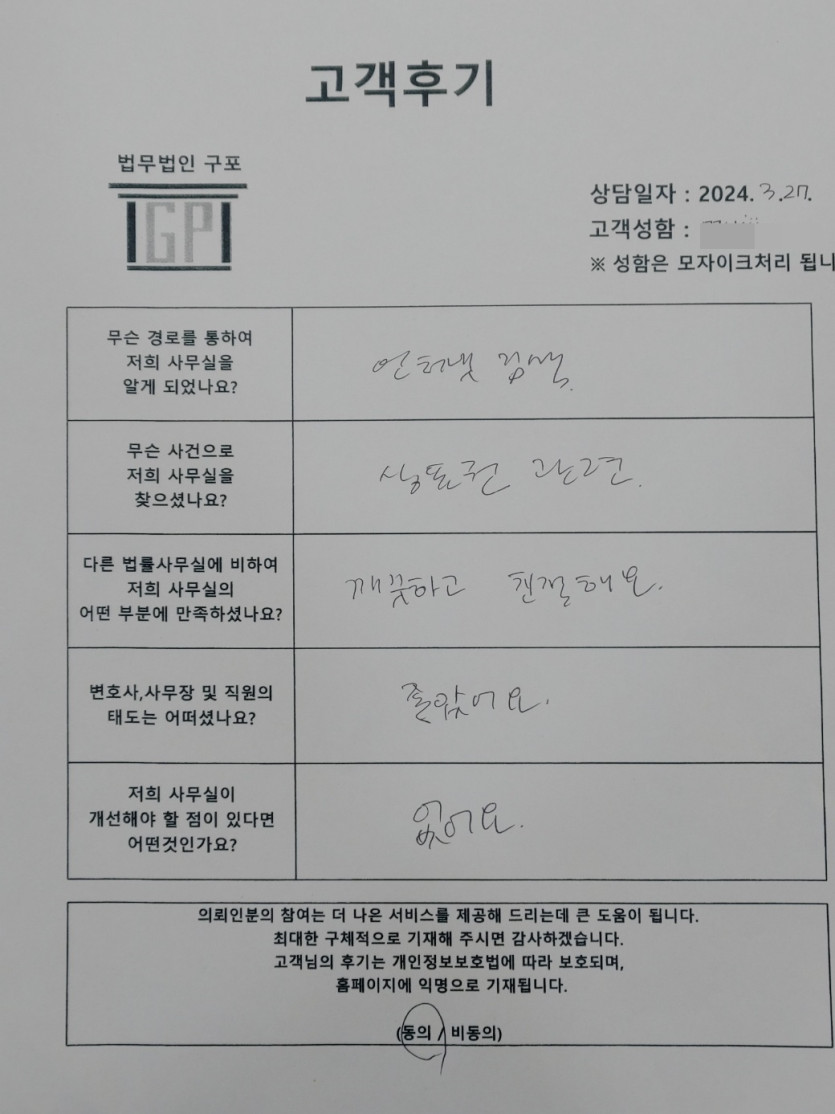 고객후기
법무법인 구포
GP
상담일자 : 2024. 3. 27.
고객성함 :
※ 성함은 모자이크처리 됩니
무슨 경로를 통하여
저희 사무실을
알게 되었나요?
인터넷 검색.
무슨 사건으로
저희 사무실을
찾으셨나요?
상표권 관련.
다른 법률사무실에 비하여
저희 사무실의
어떤 부분에 만족하셨나요?
깨끗하고 친절해요.
변호사,사무장 및 직원의
태도는 어떠셨나요?
좋았어요.
저희 사무실이
개선해야 할 점이 있다면
어떤것인가요?
없어요.
의뢰인분의 참여는 더 나은 서비스를 제공해 드리는데 큰 도움이 됩니다.
최대한 구체적으로 기재해 주시면 감사하겠습니다.
고객님의 후기는 개인정보보호법에 따라 보호되며,
홈페이지에 익명으로 기재됩니다.
(동의 / 비동의)